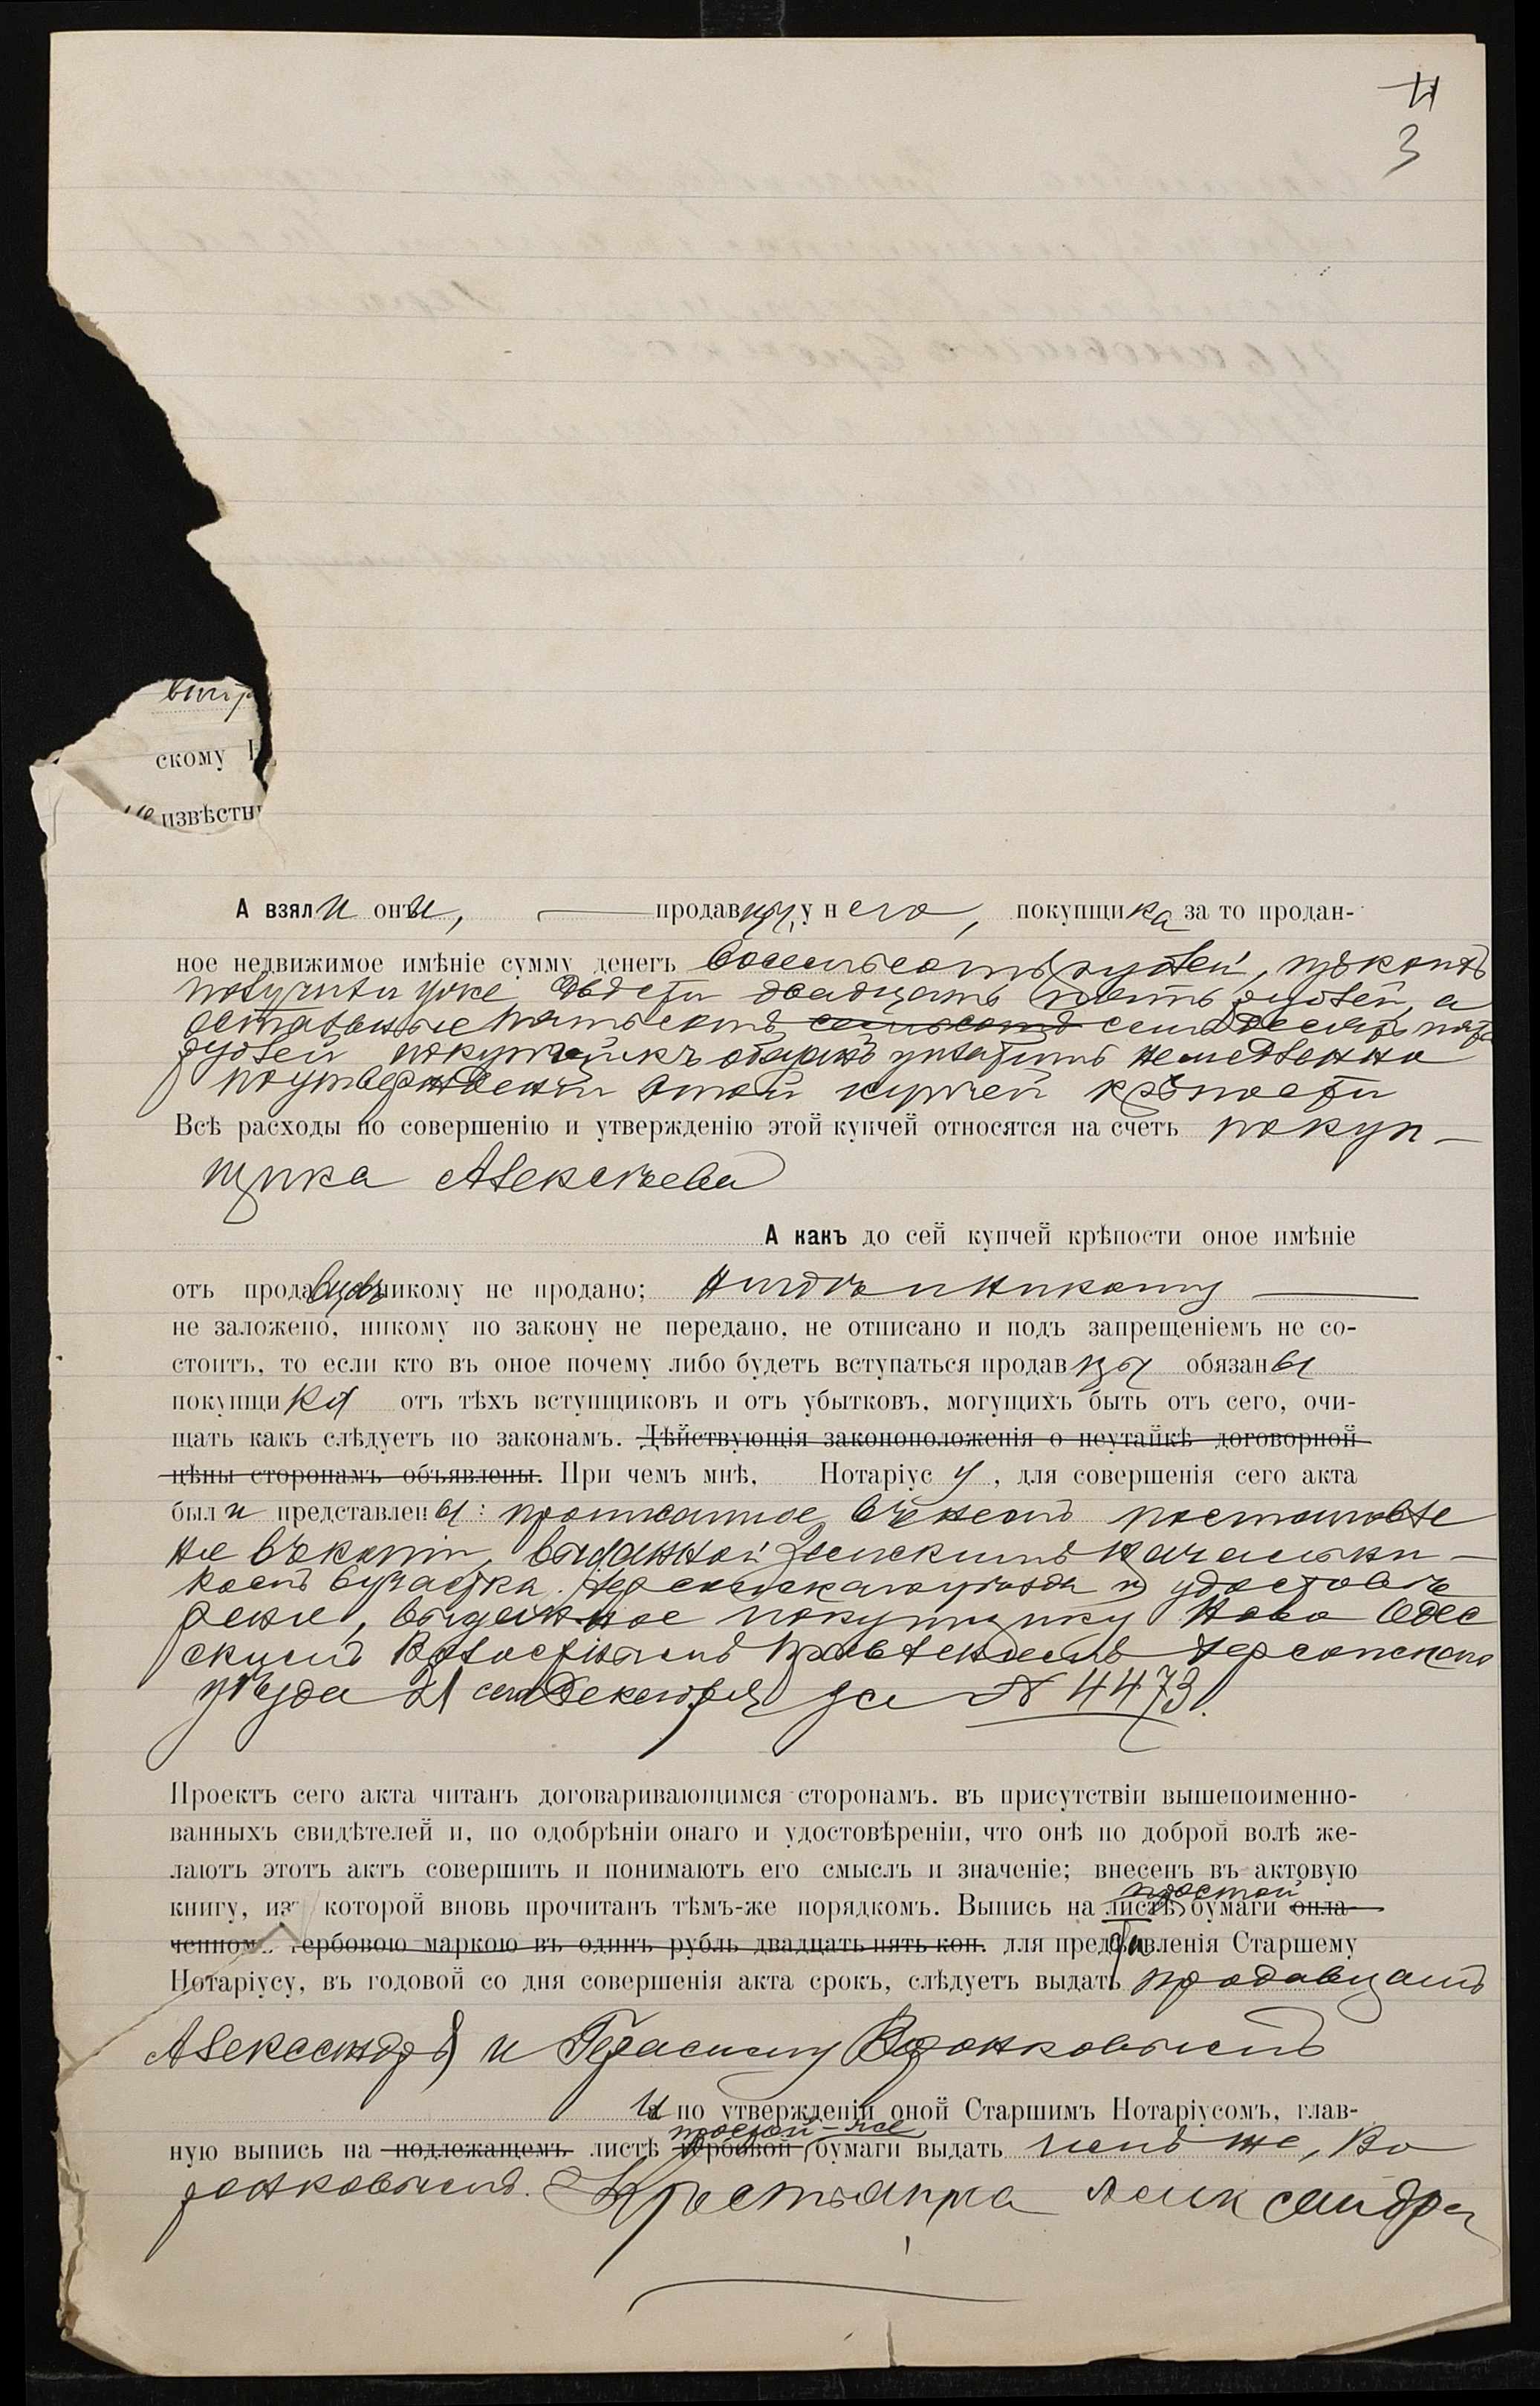 3
скому
извѣстн
А взяли они, продавцы, у него, покупщика за то продан-
ное недвижимое имѣніе сумму денегъ восемьсотъ рублей, изъ коихъ
получили уже двѣсти двадцать пять рублей, а
остальные пятьсотъ семьсотъ семьдесятъ пять
рублей покупщикъ обязанъ уплатить немедленно
по утвержденіи этой купчей крѣпости
Всѣ расходы по совершенію и утвержденію этой купчей относятся на счетъ покуп-
щика Алексѣева
А какъ до сей купчей крѣпости оное имѣніе
отъ продавцовъ никому не продано; нигдѣ и никому
не заложено, никому по закону не передано, не отписано и подъ запрещеніемъ не со-
стоитъ, то если кто въ оное почему либо будетъ вступаться продавцы обязаны
покупщика отъ тѣхъ вступщиковъ и отъ убытковъ, могущихъ быть отъ сего, очи-
щать какъ слѣдуетъ по законамъ. Дѣйствующія законоположенія о неутайкѣ договорной
цѣны сторонамъ объявлены. При чемъ мнѣ, Нотаріусу, для совершенія сего акта
были представлены: прописанное въ немъ постановле
ніе въ копіи, выданной Земскимъ Начальни-
комъ участка Херсонскаго уѣзда и удостовѣ
реніе, выданное покупщику Ново Одес
скимъ Волостнымъ Правленіемъ Херсонскаго
уѣзда 21 сего Декабря за № 4473.
Проектъ сего акта читанъ договаривающимся сторонамъ. въ присутствіи вышепоименно-
ванныхъ свидѣтелей и, по одобрѣніи онаго и удостовѣреніи, что онѣ по доброй волѣ же-
лаютъ этотъ актъ совершить и понимаютъ его смыслъ и значеніе; внесенъ въ актовую
простой
книгу, изъ которой вновь прочитанъ тѣмъ-же порядкомъ. Выпись на листѣ бумаги опла-
ченномъ гербовою маркою въ одинъ рубль двадцать пять коп. для представленія Старшему
Нотаріусу, въ годовой со дня совершенія акта срокъ, слѣдуетъ выдать продавцамъ
Александрѣ и Герасиму Воронковымъ
и по утвержденіи оной Старшимъ Нотаріусомъ, глав-
простой-же
ную выпись на подлежащемъ листѣ гербовой бумаги выдать имъ же, Во
ронковымъ. Крестьянка Александра